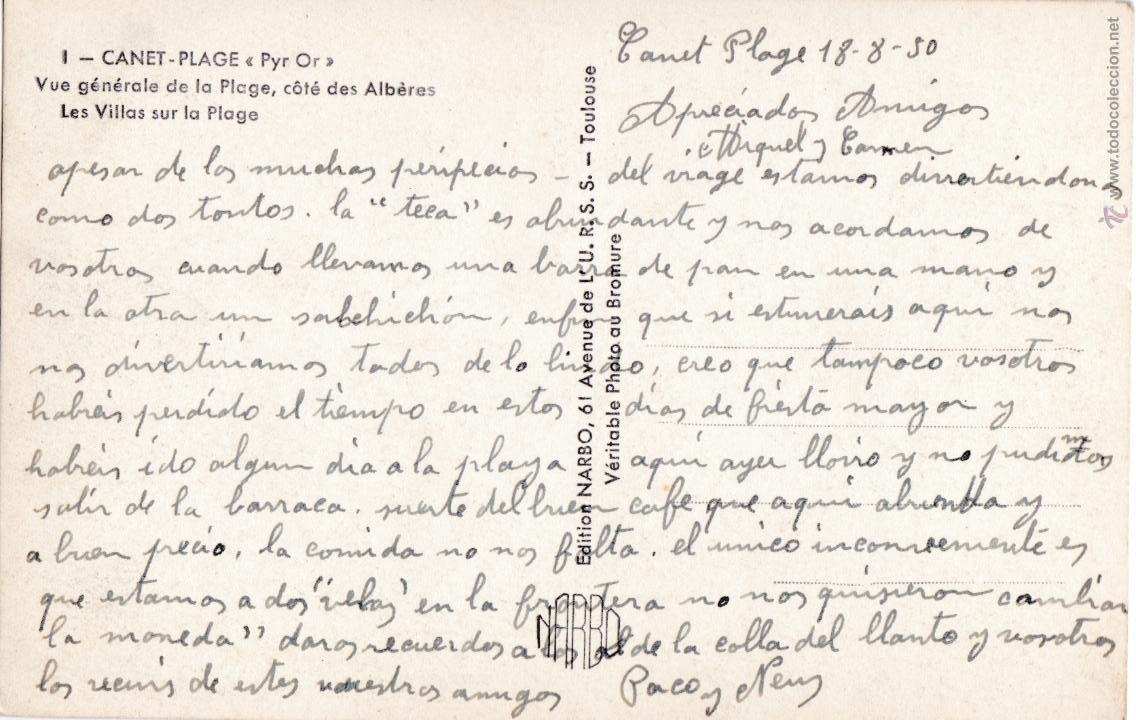 1 — CANET-PLAGE « Pyr Or »
Vue générale de la Plage, côté des Albères
Les Villas sur la Plage
Canet Plage 18-8-50
Apreciados Amigos
Miquel y Carmen
apesar de las muchas peripecias — del viage estamos divirtiendonos
como dos tontos. la "teca" es abundante y nos acordamos de
vosotros cuando llevamos una barra de pan en una mano y
en la otra un salchichón, enfin que si estuvierais aqui nos
nos divertiriamos todos de lo lindo, creo que tampoco vosotros
habreis perdido el tiempo en estos dias de fiesta mayor y
habreis ido algun dia a la playa aqui ayer llovio y no pudimos
salir de la barraca. suerte del buen cafe que aqui abunda y
a buen precio, la comida no nos falta. el unico inconveniente es
que estamos a dos "velas" en la frontera no nos quisieron cambiar
la moneda" daros recuerdos a los de la colla del llanto y vosotros
los recivis de estos vuestros amigos Paco y Neus
Edition NARBO, 61 Avenue de L'U. R. S. S. — Toulouse
Véritable Photo au Bromure
NARBO
www.todocoleccion.net